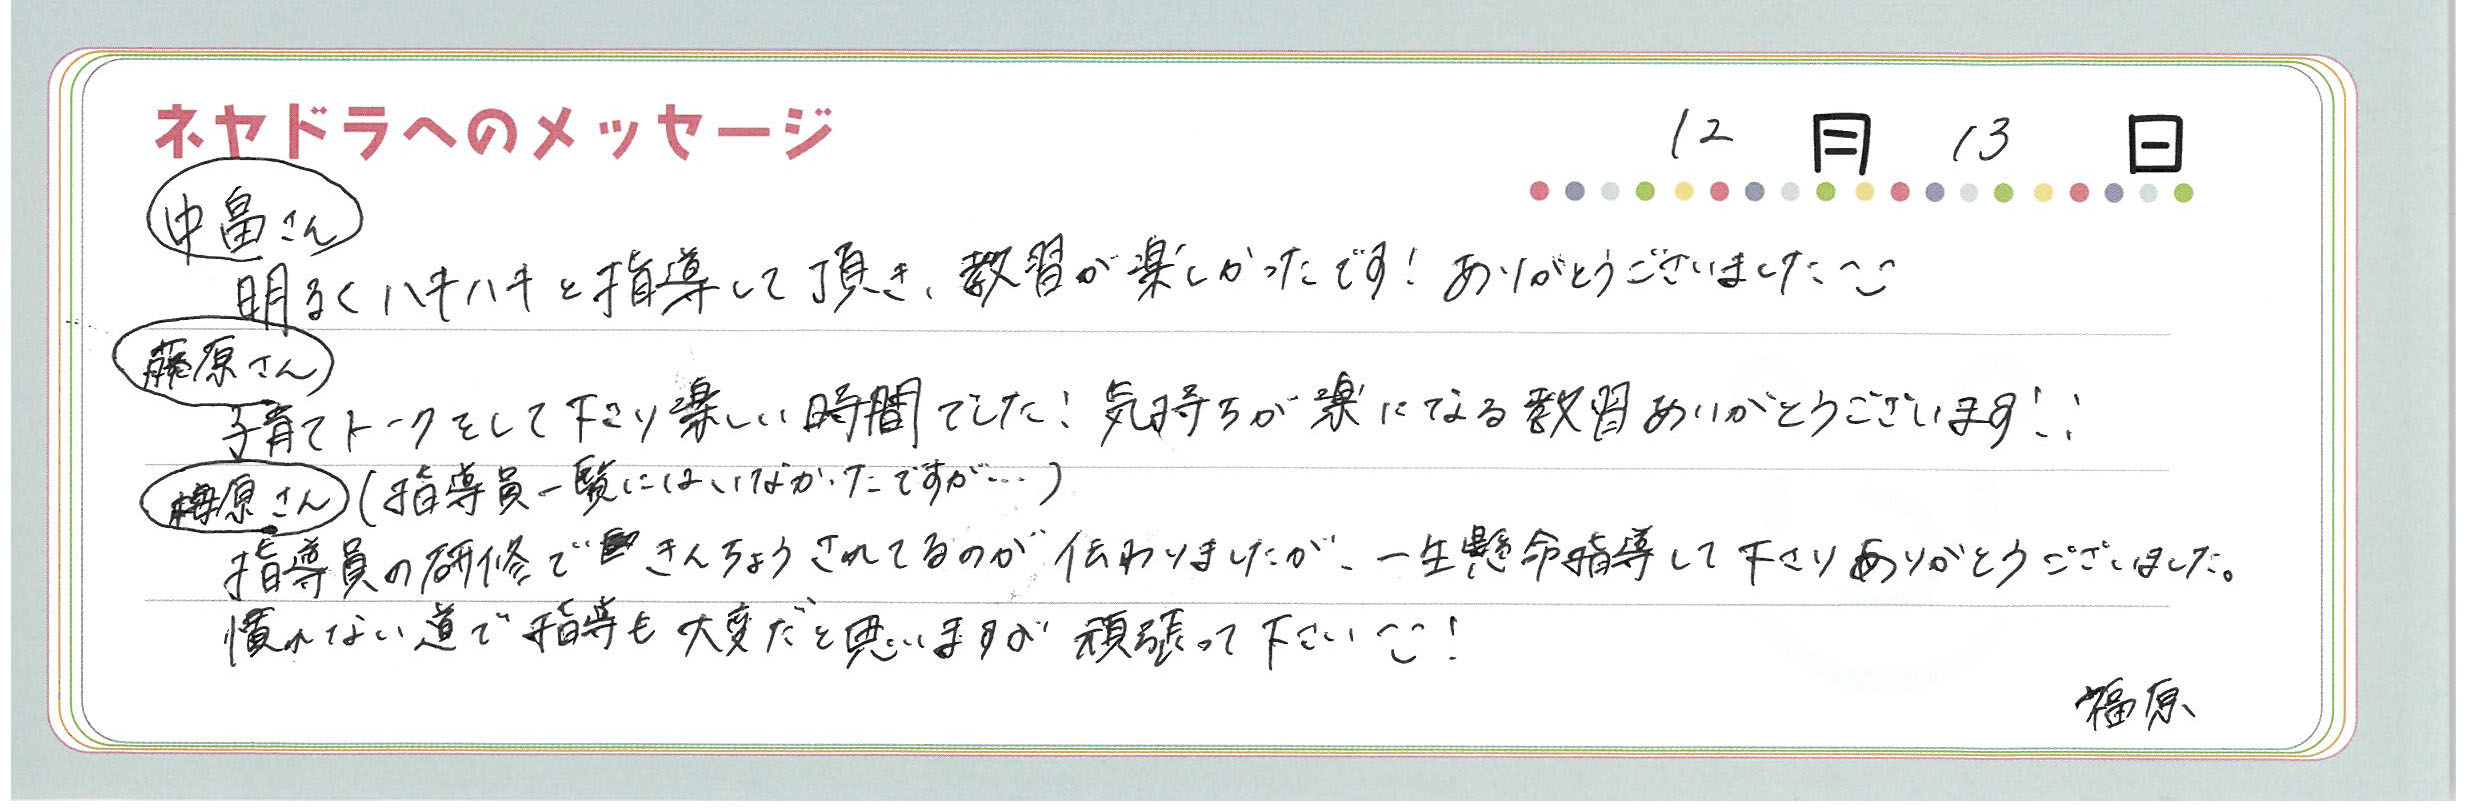 ネヤドラへのメッセージ
12月13日
中畠さん
明るくハキハキと指導して頂き、教習が楽しかったです！ありがとうございました
藤原さん
子育てトークをして下さり楽しい時間でした！気持ちが楽になる教習ありがとうございます！！
梅原さん(指導員一覧にはいなかったですが…)
指導員の研修できんちょうされてるのが伝わりましたが、一生懸命指導して下さりありがとうございました。
慣れない道で指導も大変だと思いますが頑張って下さい！
福原